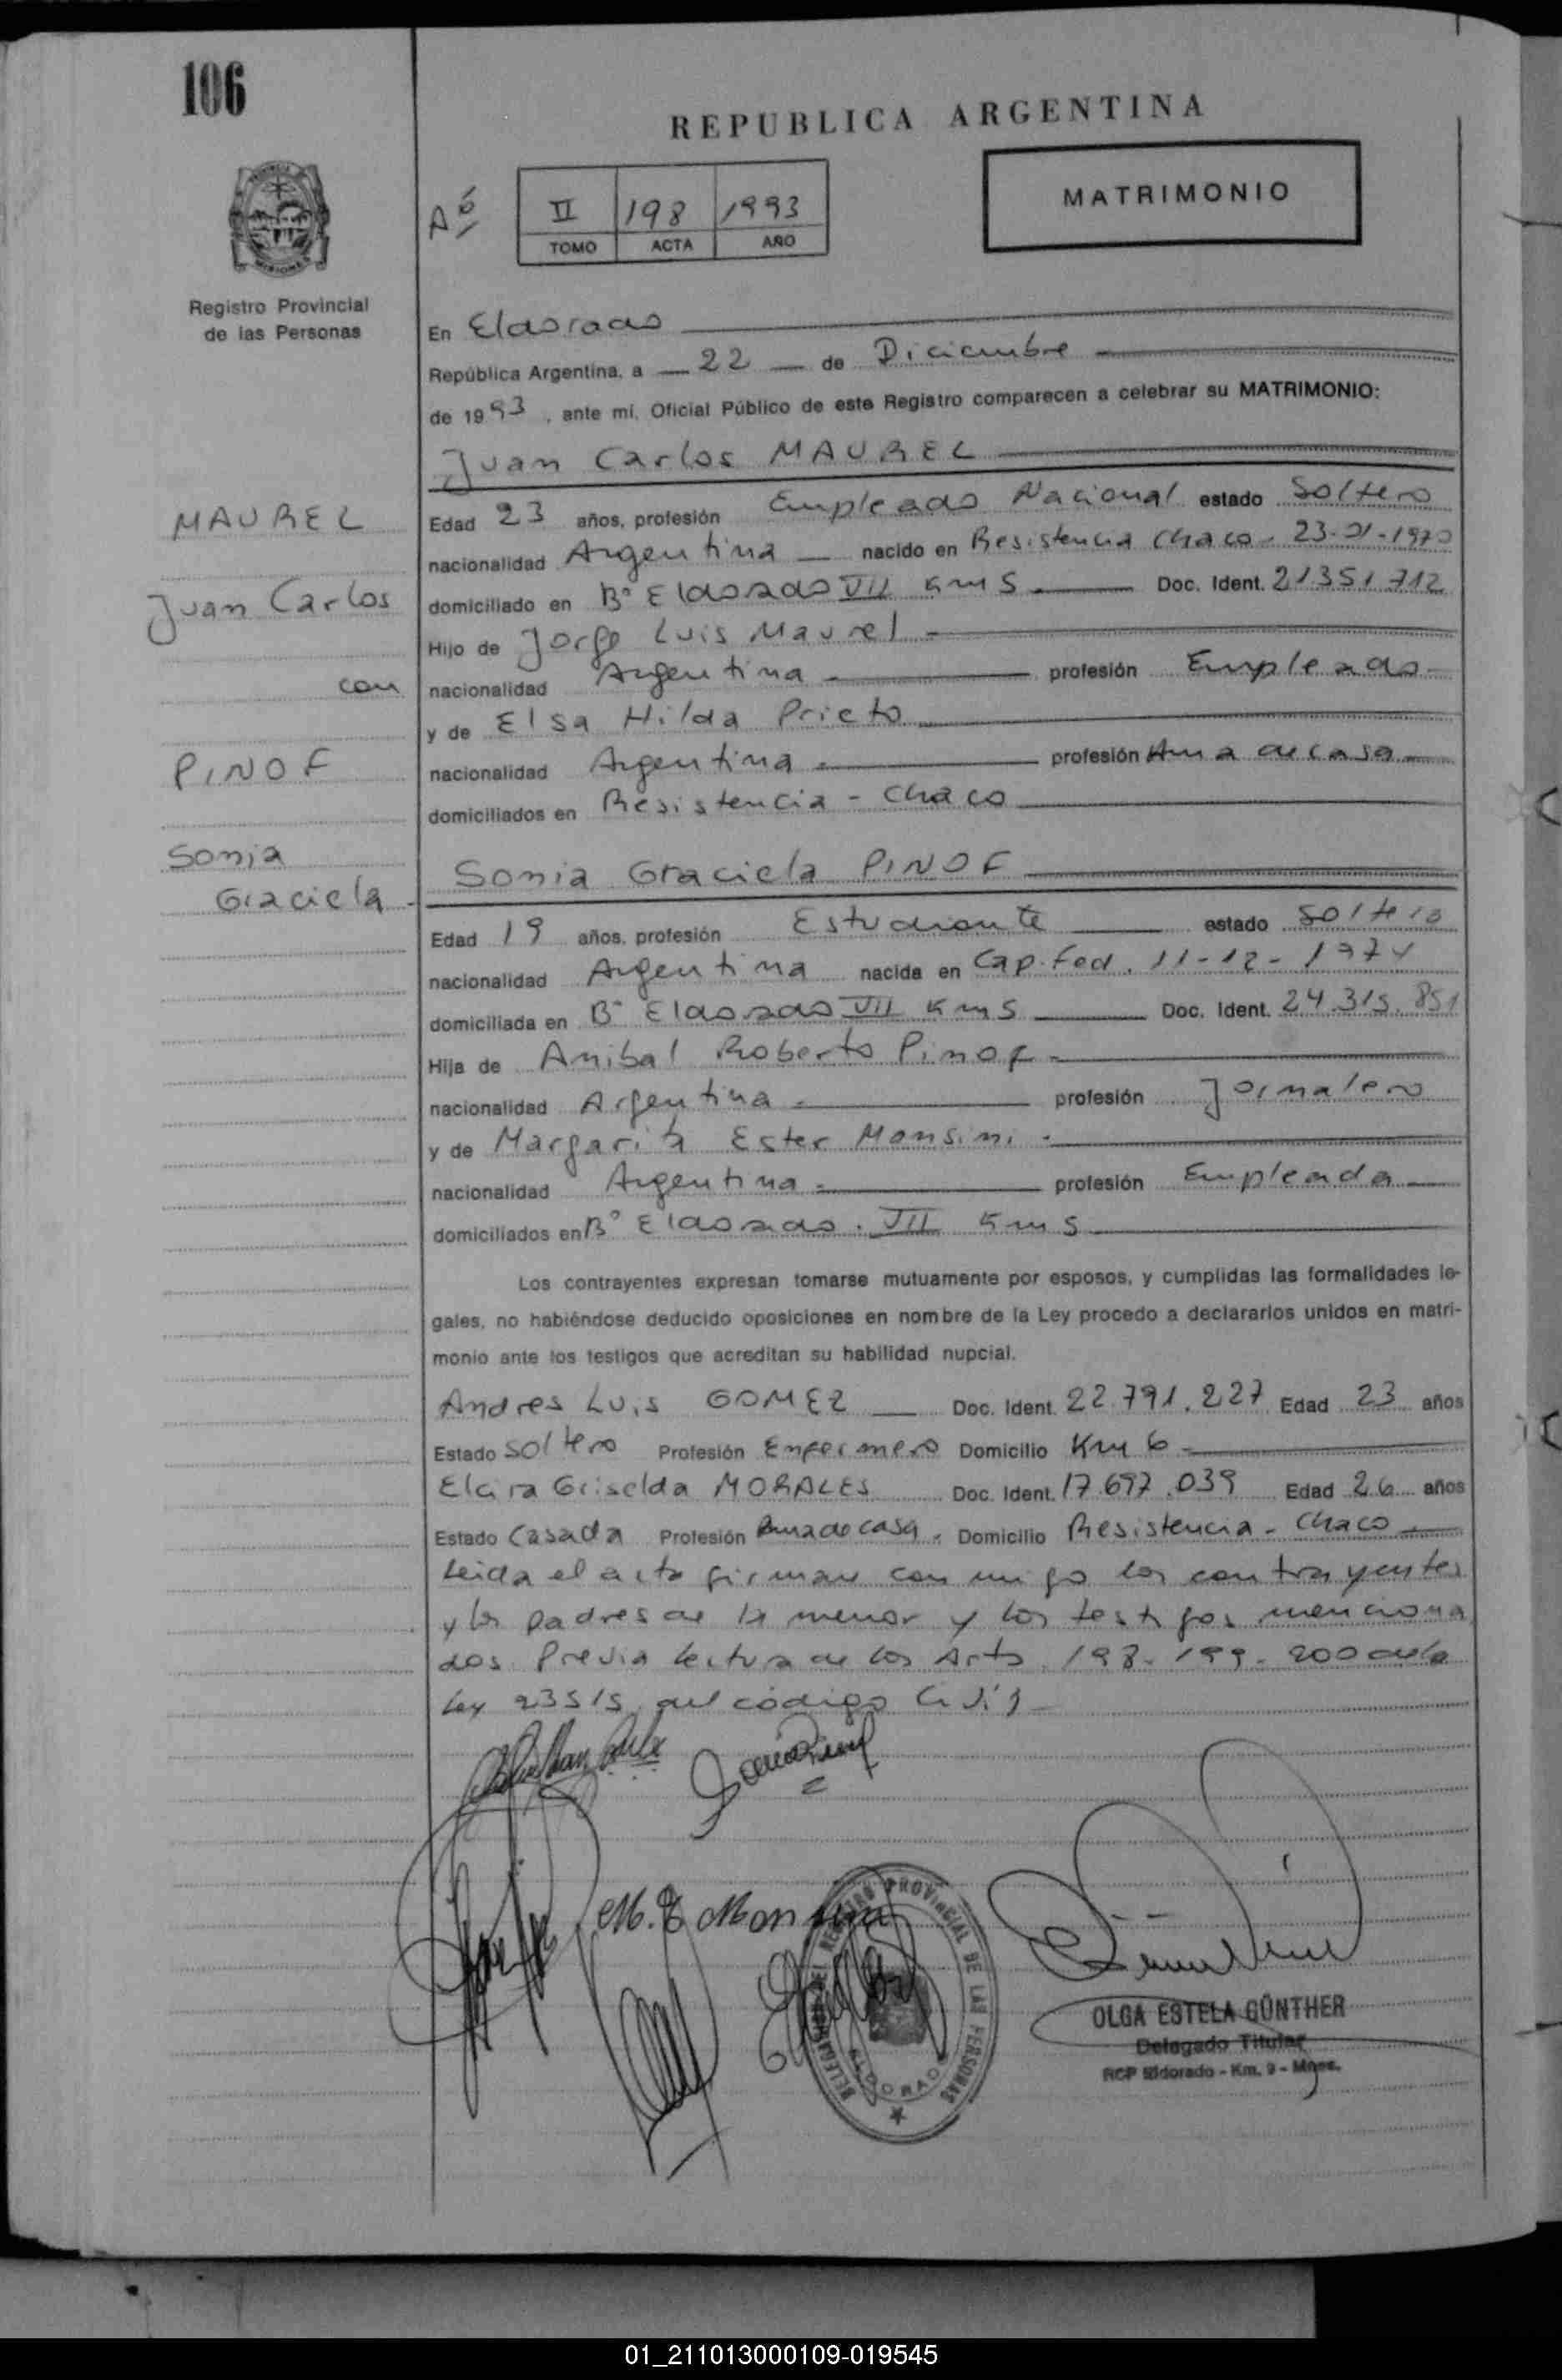 106
REPUBLICA ARGENTINA
MATRIMONIO
Aº
II 198 1993
TOMO ACTA AÑO
MISIONES
Registro Provincial
de las Personas
En Eldorado
República Argentina, a 22 de Diciembre
de 1993, ante mí, Oficial Público de este Registro comparecen a celebrar su MATRIMONIO:
Juan Carlos MAUREL
MAUREL
Juan Carlos
con
PINOF
Sonia
Graciela
Edad 23 años, profesión Empleado Nacional estado Soltero
nacionalidad Argentina nacido en Resistencia Chaco - 23-01-1970
domiciliado en Bº Eldorado VII Km 5 Doc. Ident. 21351.712
Hijo de Jorge Luis Maurel
nacionalidad Argentina profesión Empleado
y de Elsa Hilda Prieto
nacionalidad Argentina profesión Ama de casa
domiciliados en Resistencia - Chaco
Sonia Graciela PINOF
Edad 19 años, profesión Estudiante estado Soltera
nacionalidad Argentina nacida en Cap. Fed. 11-12-1974
domiciliada en Bº Eldorado VII Km 5 Doc. Ident. 24.315.851
Hija de Anibal Roberto Pinof
nacionalidad Argentina profesión Jornalero
y de Margarita Ester Monsini
nacionalidad Argentina profesión Empleada
domiciliados en Bº Eldorado. VII Km 5
Los contrayentes expresan tomarse mutuamente por esposos, y cumplidas las formalidades le-
gales, no habiéndose deducido oposiciones en nombre de la Ley procedo a declararlos unidos en matri-
monio ante los testigos que acreditan su habilidad nupcial.
Andres Luis GOMEZ Doc. Ident. 22.791.227 Edad 23 años
Estado Soltero Profesión Enfermero Domicilio Km 6
Elcira Griselda MORALES Doc. Ident. 17.697.039 Edad 26 años
Estado Casada Profesión Ama de casa. Domicilio Resistencia - Chaco
Leida el acta firman conmigo los contrayentes
y los padres de la menor y los testigos menciona
dos. Previa lectura de los Arts. 198-199-200 de la
Ley 23515 del código Civil
M. E Monsini
DELEGACION DEL REGISTRO PROVINCIAL DE LAS PERSONAS
ELDORADO
OLGA ESTELA GÜNTHER
Delegado Titular
RCP Eldorado - Km. 9 - Mnes.
01_211013000109-019545